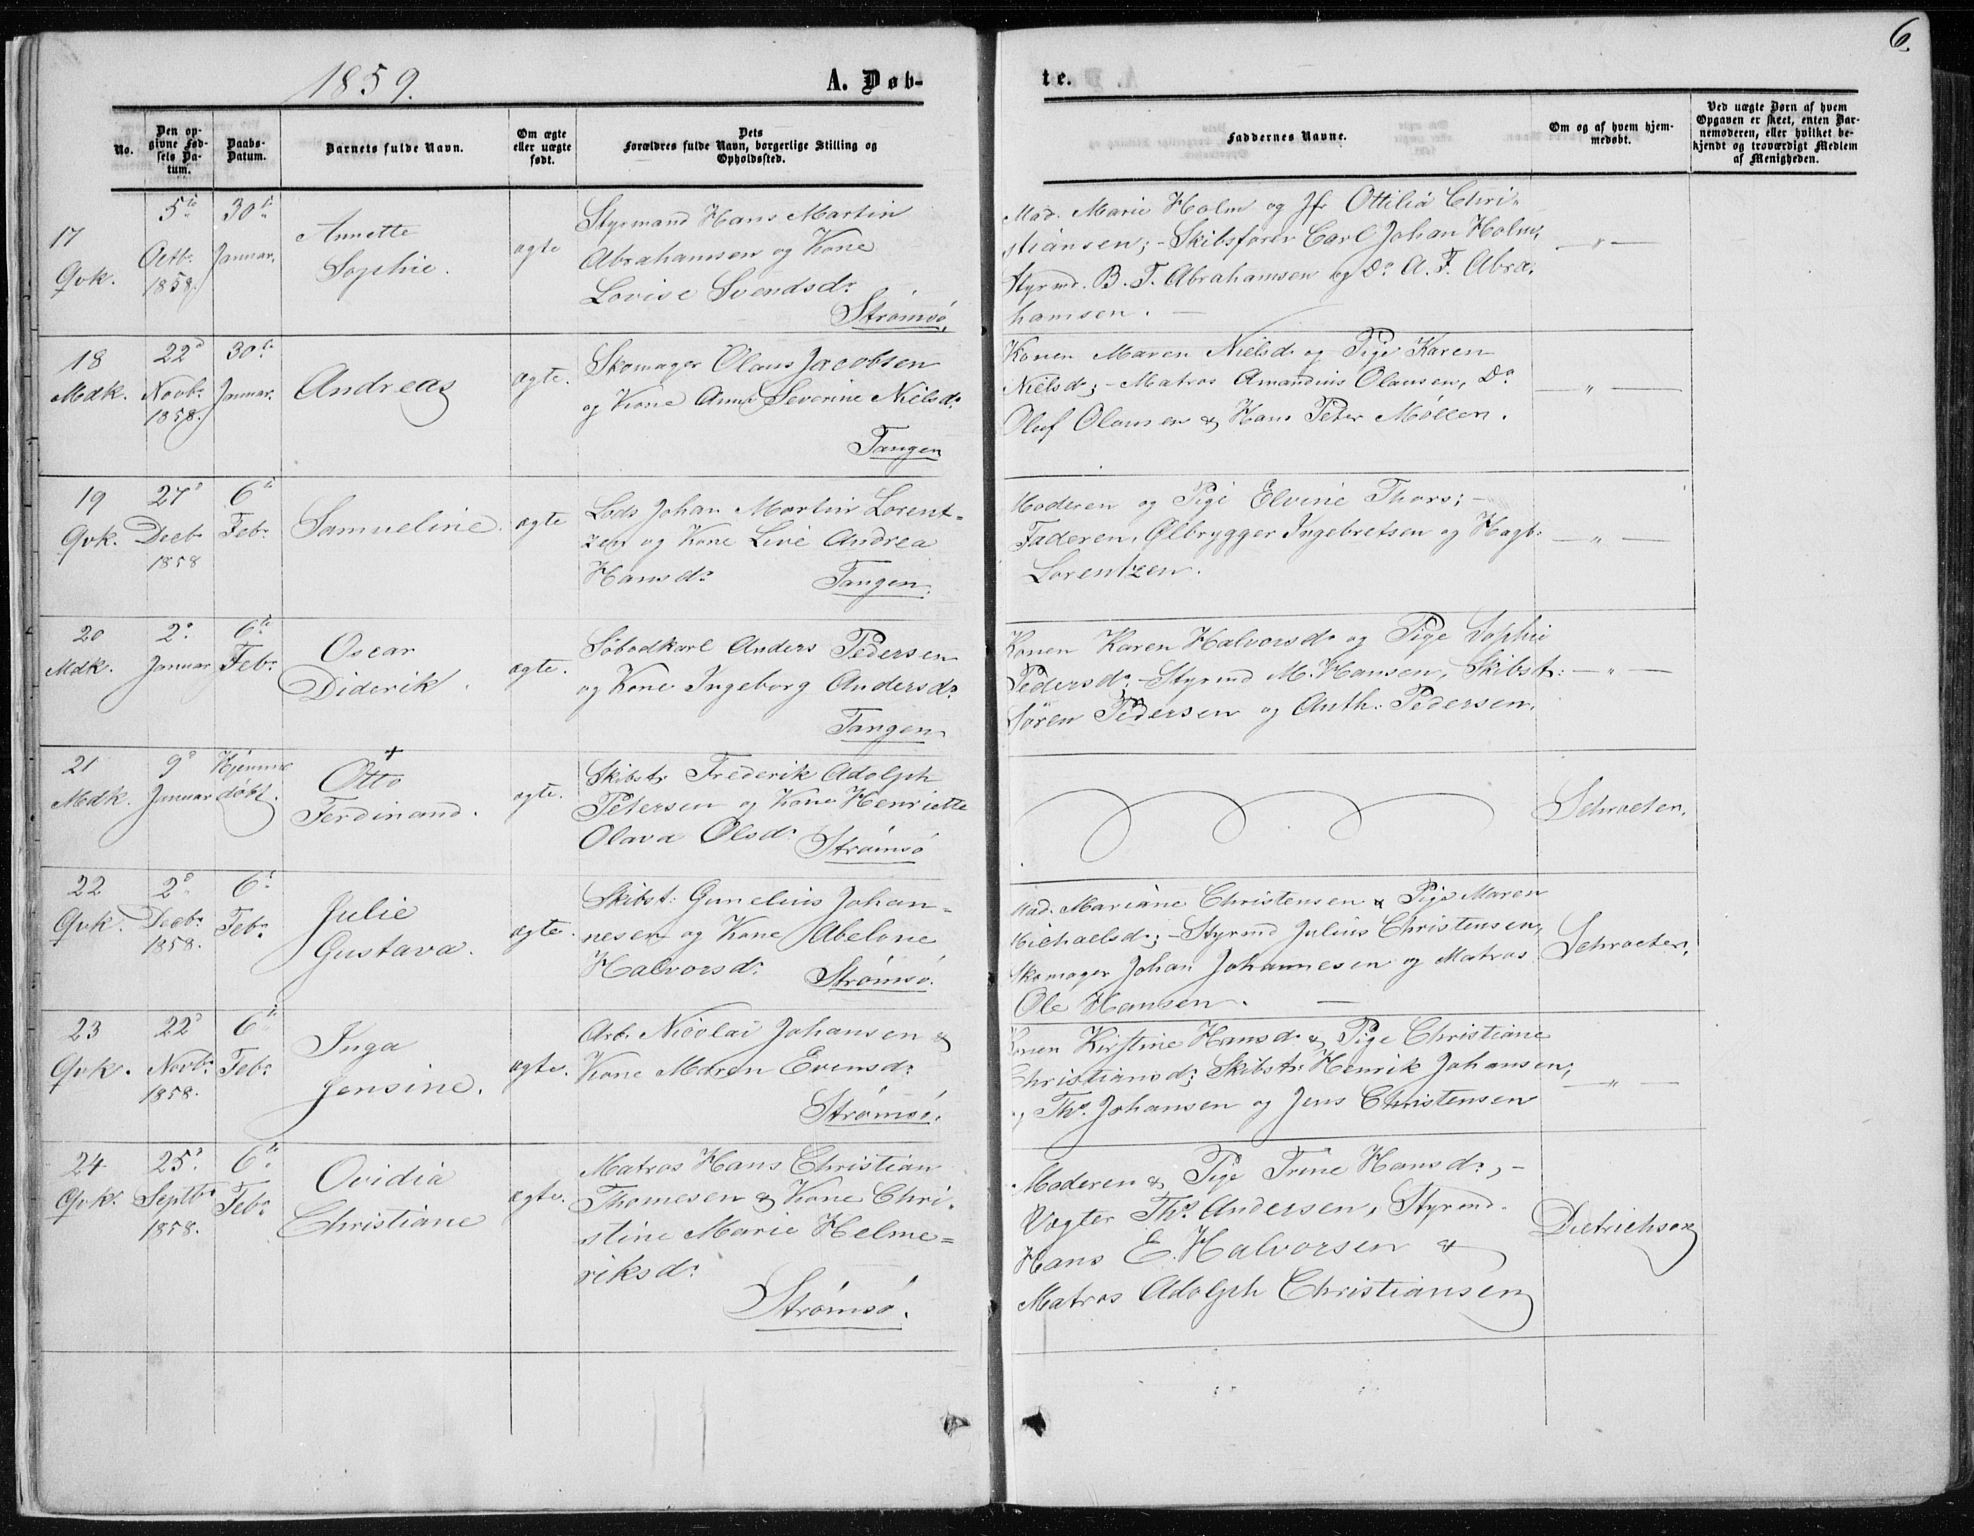 6.
1859.
A. Døb-
te.
No.
Den op-
givne Fød-
sels Da-
tum.
Daabs-
Datum.
Barnets fulde Navn.
Om ægte
eller uægte
født.
Dets
Forældres fulde Navn, borgerlige Stilling og
Opholdssted.
Faddernes Navne.
Om og af hvem hjem-
medøbt.
Ved uægte Børn af hvem
Opgaven er skeet, enten Bar-
nemoderen, eller hvilket be-
kjendt og troværdigt Medlem
af Menigheden.
17
Qvk.
5te
Octbr
1858.
30te
Januar.
Annette
Sophie.
ægte
Styrmand Hans Martin
Abrahamsen og Kone
Lovise Svendsdr
Strømsø.
Mad. Marie Holm og Jfr Ottilia Chri-
stiansen; - Skibsfører Carl Johan Holm,
Styrmd. B. T. Abrahamsen og Do A. F. Abra-
hamsen. —
— „ —
18
Mdk.
22d
Novbr
1858.
30te
Januar.
Andreas
ægte.
Skomager Olaus Jacobsen
og Kone Anne Severine Nielsdr
Tangen
Konen Maren Nielsdr og Pige Karen
Nielsdr; - Matros Amandius Olausen, Do
Oluf Olausen & Hans Peter Møller.
— „ —
19
Qvk.
27d
Decbr
1858
6te
Febr
Samueline.
ægte
Lods Johan Martin Lorent-
zen og Kone Live Andrea
Hansdr Tangen.
Moderen og Pige Elvine Thors; -
Faderen, Ølbrygger Ingebretsen og Hagb.
Lorentzen.
— „ —
20
Mdk.
2d
Januar
6te
Febr
Oscar
Diderik.
ægte.
Søbodkarl Anders Pedersen
og Kone Ingeborg Andersdr
Tangen
Konen Karen Halvorsdr og Pige Sophie
Pedersdr; - Styrmd M. Hansen, Skibst:
Søren Pedersen og Anth. Pedersen.
— „ —
21
Mdk.
9d
Januar
Hjemme
døbt.
+
Otto
Ferdinand.
ægte.
Skibstr Frederik Adolph
Petersen og Kone Henriette
Olava Olsdr Strømsø
Schroeter.
22
Qvk.
2d
Decbr
1858.
6te
Febr
Julie
Gustava.
ægte.
Skibst: Gunelius Johan-
nesen og Kone Abelone
Halvorsdr Strømsø.
Mad. Mariane Christensen & Pige Maren
Michaelsdr; - Styrmd Julius Christensen,
Skomager Johan Johannesen og Matros
Ole Hansen. —
Schroeter.
23
Qvk.
22d
Novbr
1858.
6te
Febr
Inga
Jensine.
ægte.
Arb. Nicolai Johansen &
Kone Maren Evensdr
Strømsø.
Konen Kirstine Hansdr & Pige Christiane
Christiansdr; Skibstr Henrik Johansen,
og Ths Johansen og Jens Christensen
— „ —
24
Qvk.
25d
Septbr
1858.
6te
Febr
Ovidia
Christiane
ægte.
Matros Hans Christian
Thomesen & Kone Chri-
stine Marie Helme-
riksdr
Strømsø.
Moderen & Pige Trine Hansdr, -
Vægter Ths Andersen, Styrmd.
Hans E. Halvorsen &
Matros Adolph Christiansen
Dietrichson